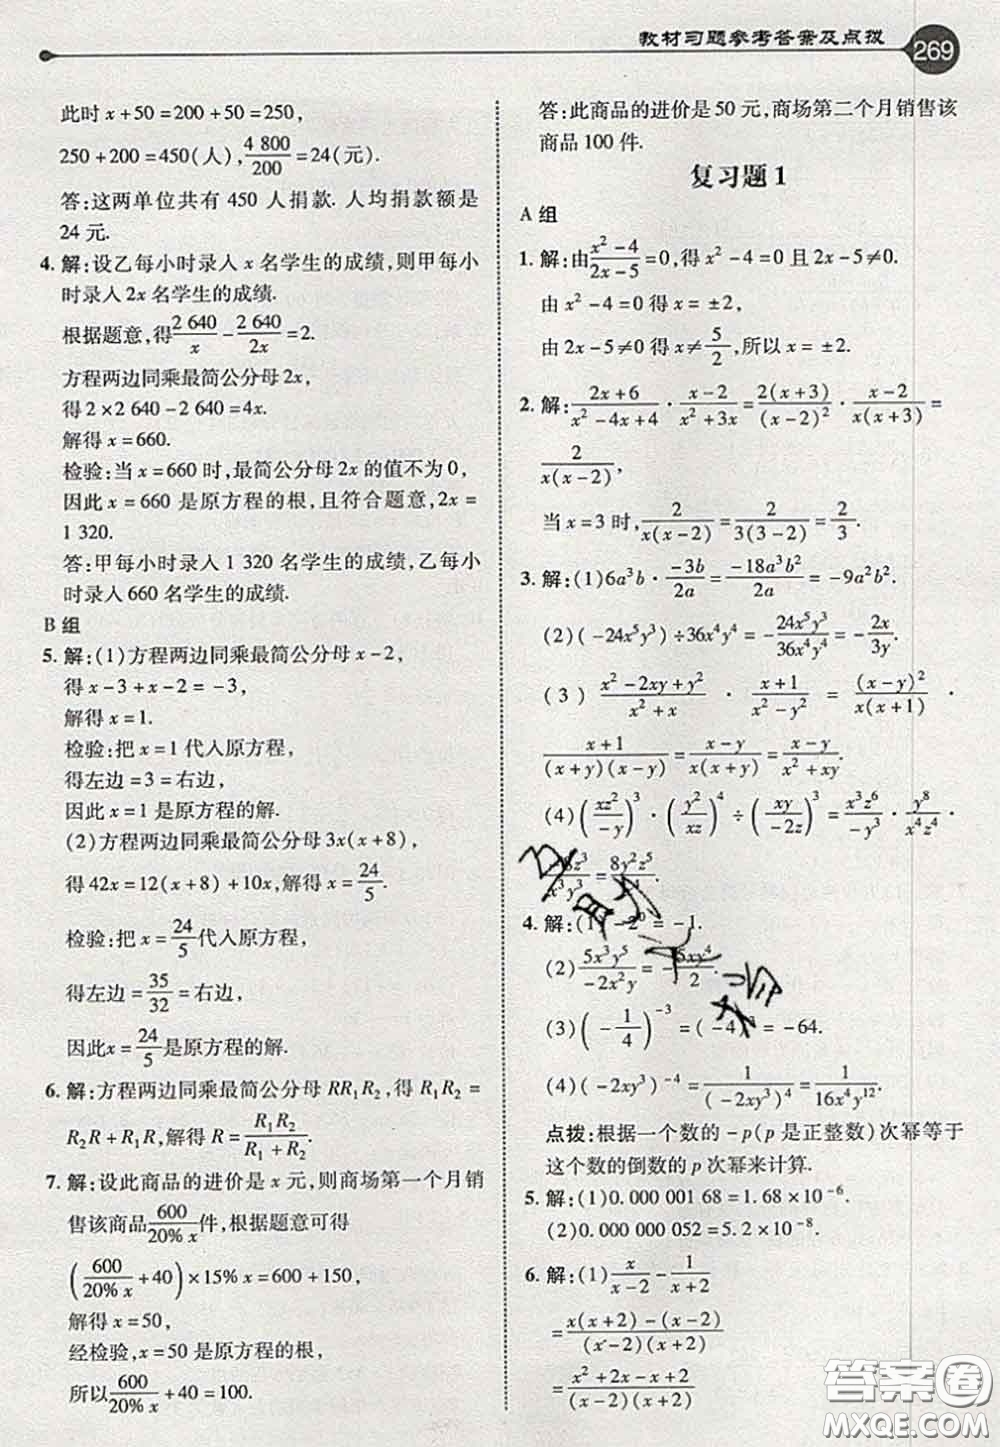 教材习题参考答案及点拨 269
此时 x+50=200+50=250,
250+200=450(人),4 800/200=24(元).
答:这两单位共有 450 人捐款. 人均捐款额是
24 元.
4. 解:设乙每小时录入 x 名学生的成绩,则甲每小
时录入 2x 名学生的成绩.
根据题意,得 2 640/x - 2 640/2x = 2.
方程两边同乘最简公分母 2x,
得 2×2 640-2 640=4x.
解得 x=660.
检验:当 x=660 时,最简公分母 2x 的值不为 0,
因此 x=660 是原方程的根,且符合题意,2x=
1 320.
答:甲每小时录入 1 320 名学生的成绩,乙每小
时录入 660 名学生的成绩.
B 组
5. 解:(1)方程两边同乘最简公分母 x-2,
得 x-3+x-2=-3,
解得 x=1.
检验:把 x=1 代入原方程,
得左边=3=右边,
因此 x=1 是原方程的解.
(2)方程两边同乘最简公分母 3x(x+8),
得 42x=12(x+8)+10x,解得 x=24/5.
检验:把 x=24/5 代入原方程,
得左边=35/32=右边,
因此 x=24/5 是原方程的解.
6. 解:方程两边同乘最简公分母 RR₁R₂,得 R₁R₂=
R₂R+R₁R,解得 R=R₁R₂/(R₁+R₂).
7. 解:设此商品的进价是 x 元,则商场第一个月销
售该商品 600/(20% x) 件,根据题意可得
(600/(20% x)+40)×15% x=600+150,
解得 x=50,
经检验,x=50 是原方程的根,
所以 600/(20% x)+40=100.
答:此商品的进价是 50 元,商场第二个月销售该
商品 100 件.
复习题 1
A 组
1. 解:由 (x²-4)/(2x-5)=0,得 x²-4=0 且 2x-5≠0.
由 x²-4=0 得 x=±2,
由 2x-5≠0 得 x≠5/2,所以 x=±2.
2. 解:(2x+6)/(x²-4x+4)·(x-2)/(x²+3x)=2(x+3)/(x-2)²·(x-2)/(x(x+3))=
2/(x(x-2)),
当 x=3 时,2/(x(x-2))=2/(3(3-2))=2/3.
3. 解:(1)6a³b·(-3b)/(2a)=(-18a³b²)/(2a)=-9a²b².
(2)(-24x⁵y³)÷36x⁴y⁴=-24x⁵y³/36x⁴y⁴=-2x/3y.
(3)(x²-2xy+y²)/(x²+x)·(x+1)/(x²-y²)=(x-y)²/(x(x+1))·
(x+1)/((x+y)(x-y))=(x-y)/(x(x+y))=(x-y)/(x²+xy).
(4)(xz²/-y)³·(y²/xz)⁴÷(xy/-2z)³=x³z⁶/-y³·y⁸/x⁴z⁴·
-8z³/x³y³=8y²z⁵/
4. 解:(1)-2⁰=-1.
(2)5x³y⁵/-2x²y=-5xy⁴/2.
(3)(-1/4)⁻³=(-4)³=-64.
(4)(-2xy³)⁻⁴=1/(-2xy³)⁴=1/16x⁴y¹².
点拨:根据一个数的-p(p 是正整数)次幂等于
这个数的倒数的 p 次幂来计算.
5. 解:(1)0.000 001 68=1.68×10⁻⁶.
(2)0.000 000 052=5.2×10⁻⁸.
6. 解:(1)x/(x-2)-1/(x+2)
=(x(x+2)-(x-2))/((x-2)(x+2))
=(x²+2x-x+2)/((x-2)(x+2))
答案圈
MXQE.COM